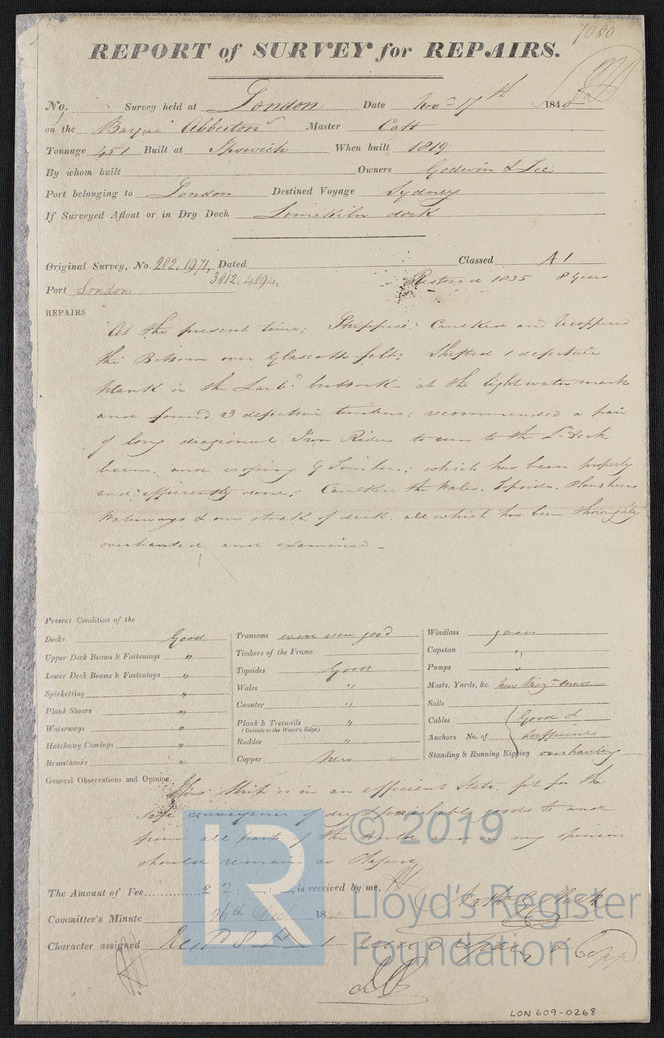 7080
REPORT of SURVEY for REPAIRS.
No. Survey held at London Date Nov 17th 1840
on the Barque Abberton Master Catt
Tonnage 451 Built at Ipswich When built 1819
By whom built Owners Godwin & Lee
Port belonging to London Destined Voyage Sydney
If Surveyed Afloat or in Dry Dock Limekiln dock
Original Survey, No. 282, 1971, Dated Classed A1
3812, 4594,
Port London Restored 1835 8 Years
REPAIRS
At the present time; Stripped, Caulked and Recoppered
the Bottom over Glascott felt; Shifted 1 defective
plank in the Larb. buttock at the light water mark
and found 3 defective timbers; recommended a pair
of long diagonal Iron Riders to run to the Lr Deck
beam, and which has been properly
and efficiently done; Caulked the Wales, Topsides, Plansheers
Waterways & one strake of deck, all which has been thoroughly
overhauled and examined.
Present Condition of the
Decks Good
Upper Deck Beams & Fastenings "
Lower Deck Beams & Fastenings "
Spirketting "
Plank Shears "
Waterways "
Hatchway Comings "
Breasthooks "
Transoms were seen good
Timbers of the Frame
Topsides Good
Wales "
Counter "
Plank & Treenails "
(Outside to the Water's Edge)
Rudder "
Copper New
Windlass good
Capstan "
Pumps "
Masts, Yards, &c. New Miz. Mast
Sails
Cables Good &
Anchors No. of sufficient
Standing & Running Rigging overhauling
General Observations and Opinion, This Ship is in an efficient State, fit for the
Safe conveyance of dry & perishable goods to and
from all parts of the World and in my opinion
should remain as Classed
The Amount of Fee £ 2 is received by me,
Committee's Minute 26th 1840
Character assigned
© 2019
Lloyd's Register
Foundation
LR
LON 609-0268